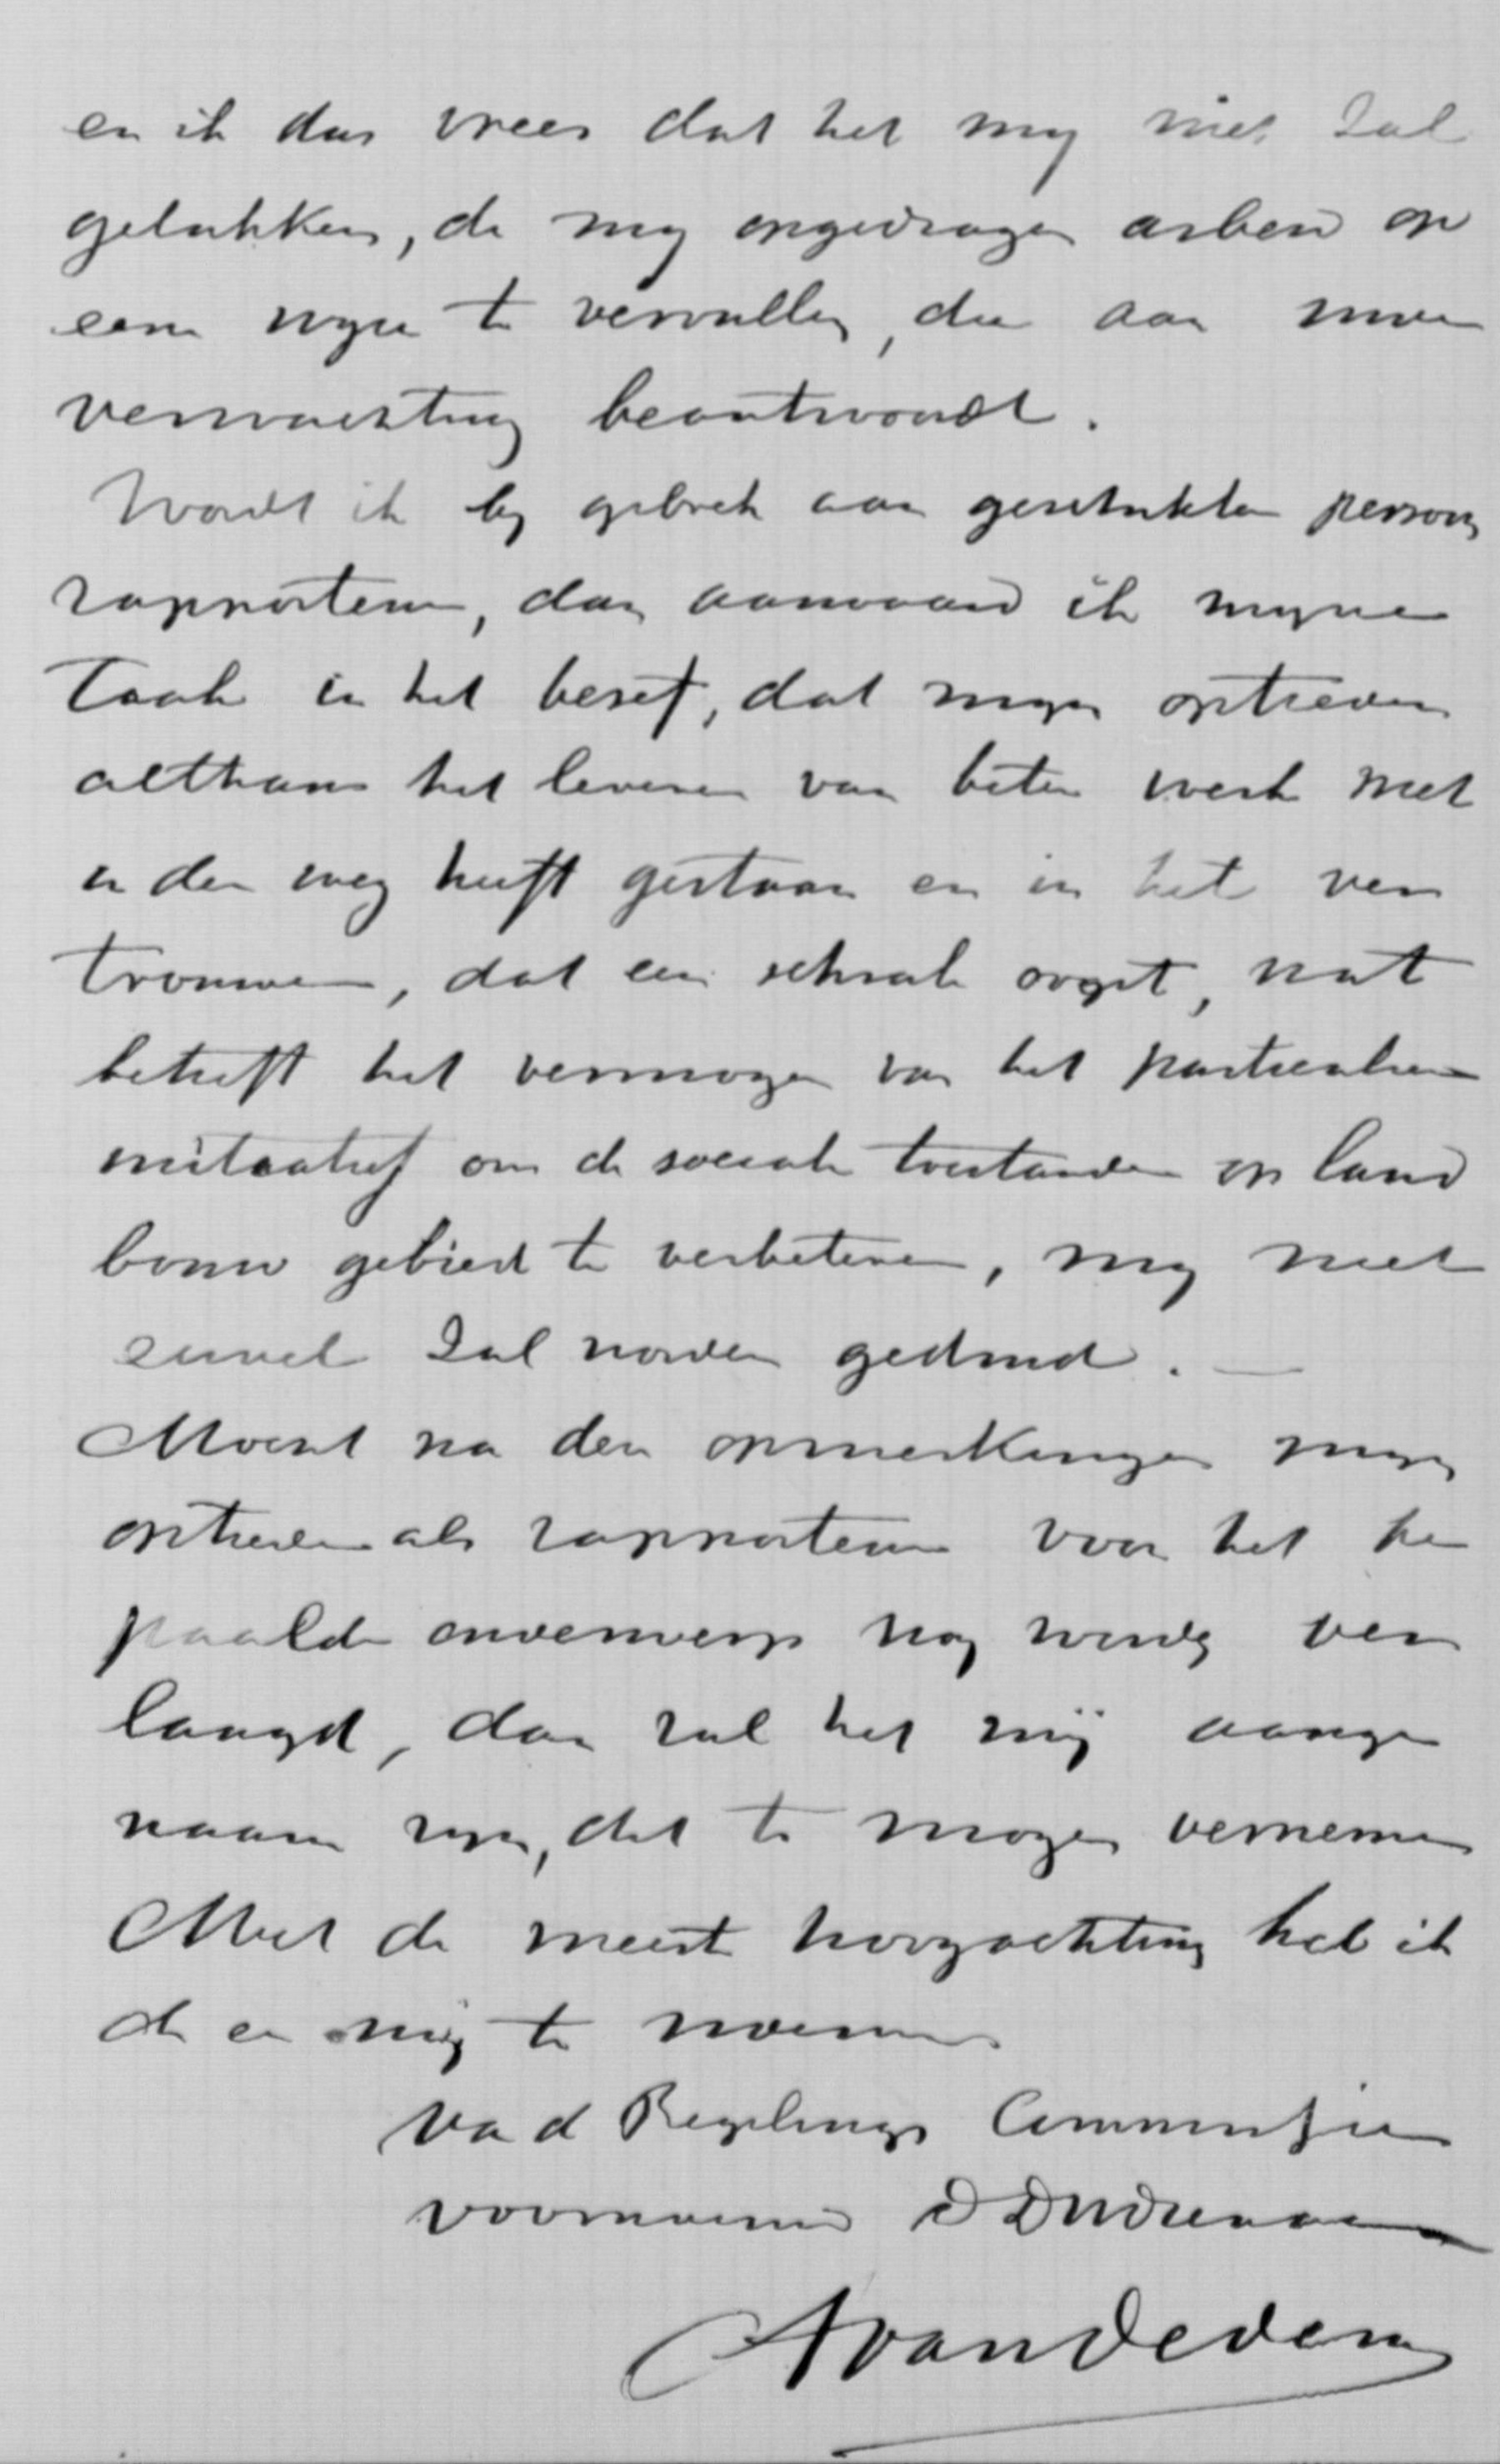 en ik dus vrees dat het mij niet zal
gelukken, de mij opgedragen arbeid op
eene wijze te vervullen, die aan uwe
verwachting beantwoordt.
Wordt ik bij gebrek aan geschikter persoon
rapporteur, dan aanvaard ik mijne
taak in het besef, dat mijn optreden
althans het leveren van beter werk niet
in den weg heeft gestaan en in het ver
trouwen, dat een schrale oogst, wat
betreft het vermogen van het particulier
initiatief om de sociale toestanden op land
bouw gebied te verbeteren, mij niet
euvel zal worden geduid. —
Mocht na deze opmerkingen mijn
optreden als rapporteur voor het be
paalde onderwerp nog worden ver
langd, dan zal het mij aange
naam zijn, dit te mogen vernemen
Met de meeste hoogachting heb ik
de eer mij te noemen
Va d Regelings Commissie
voornoemd D Dw Dienaar
A van Dedem